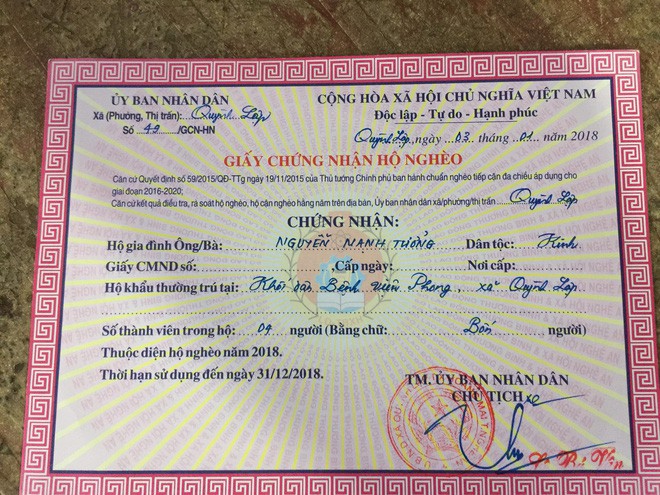 ỦY BAN NHÂN DÂN
CỘNG HÒA XÃ HỘI CHỦ NGHĨA VIỆT NAM
Xã (Phường, Thị trấn): Quỳnh Lập
Độc lập - Tự do - Hạnh phúc
Số 49 /GCN-HN
Quỳnh Lập, ngày 03 tháng 01 năm 2018
GIẤY CHỨNG NHẬN HỘ NGHÈO
Căn cứ Quyết định số 59/2015/QĐ-TTg ngày 19/11/2015 của Thủ tướng Chính phủ ban hành chuẩn nghèo tiếp cận đa chiều áp dụng cho
giai đoạn 2016-2020;
Căn cứ kết quả điều tra, rà soát hộ nghèo, hộ cận nghèo hằng năm trên địa bàn, Ủy ban nhân dân xã/phường/thị trấn Quỳnh Lập
CHỨNG NHẬN:
Hộ gia đình Ông/Bà: NGUYỄN MẠNH TƯỞNG Dân tộc: Kinh
Giấy CMND số: Cấp ngày: Nơi cấp:
Hộ khẩu thường trú tại: Khối dân Bệnh viện Phong, xã Quỳnh Lập
Số thành viên trong hộ: 04 người (Bằng chữ: Bốn người)
Thuộc diện hộ nghèo năm 2018.
Thời hạn sử dụng đến ngày 31/12/2018.
TM. ỦY BAN NHÂN DÂN
CHỦ TỊCH